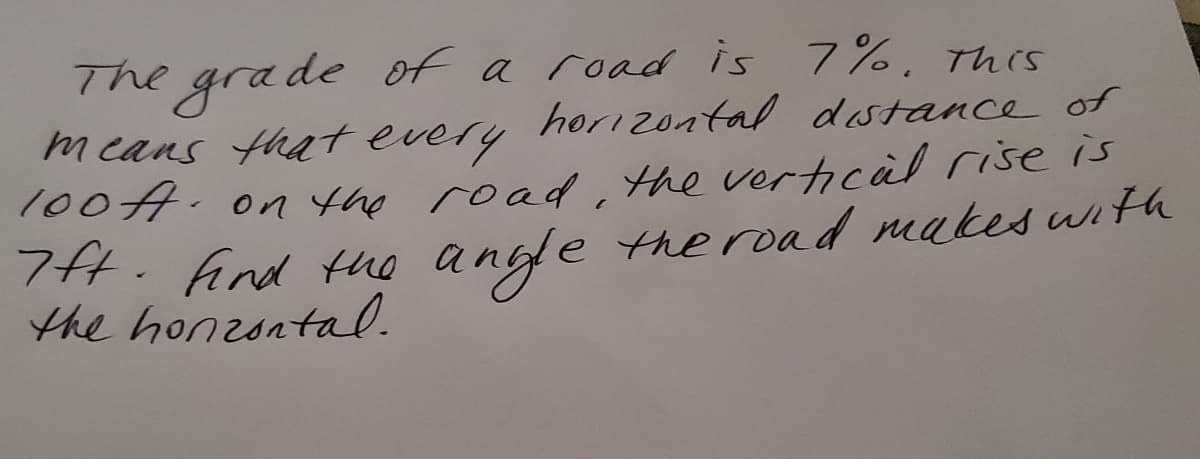 The grade of a road is 7%. This
means that every horizontal distance of
100ft. on the road, the vertical rise is
7ft. find the angle the road makes with
the horizontal.